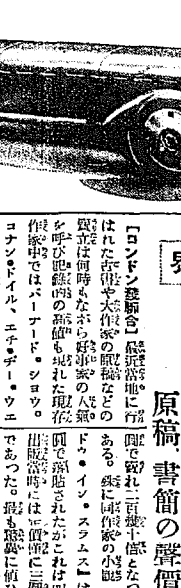 原稿、書簡の聲價
【ロンドン發聯合】最近當地に行
はれた古書や大作家の原稿などの
賣立は何時もながら好事家の人氣
を呼び記錄的の高値も現れた現存
作家中ではバーナード・ショウ。
コナン・ドイル、エチ・ヂー・ウエ
圓で賣れ二百幾十倍となつ
ある。殊に同作家の小說
ドゥ・イン・スラムス』は
圓で落貼されたがこれは同
出版當時には一價僅に三圓
であつた。最も驚異に値す